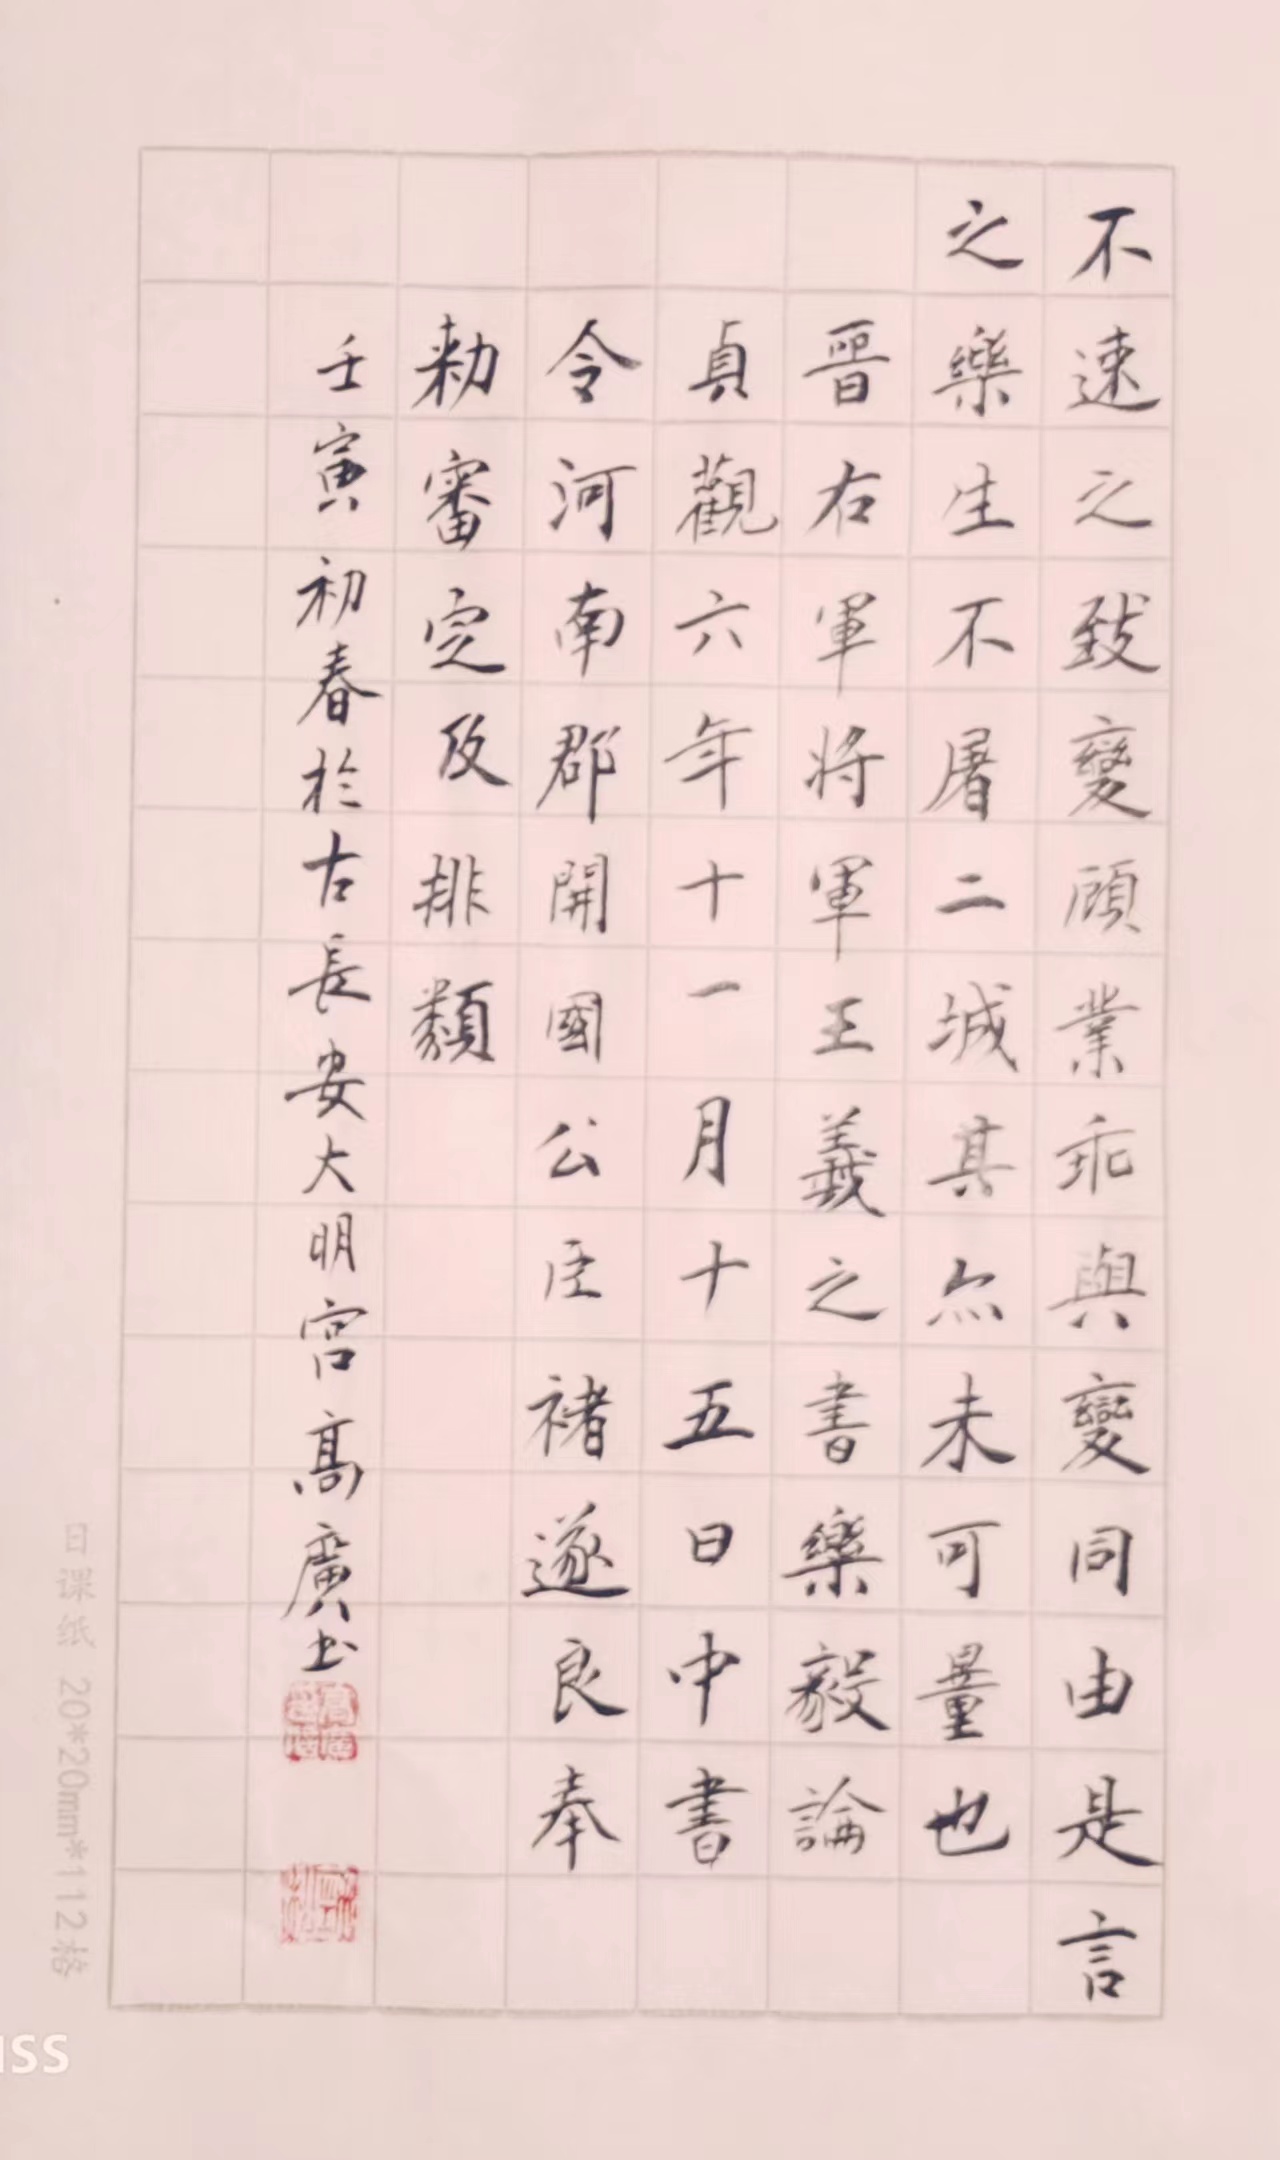 不速之致變顧業乖與變同由是言
之樂生不屠二城其尒未可量也
晉右軍將軍王羲之書樂毅論
貞觀六年十一月十五日中書
令河南郡開國公臣褚遂良奉
勑審定及排類
壬寅初春於古長安大明宮高廣书
日课纸 20*20mm*112格